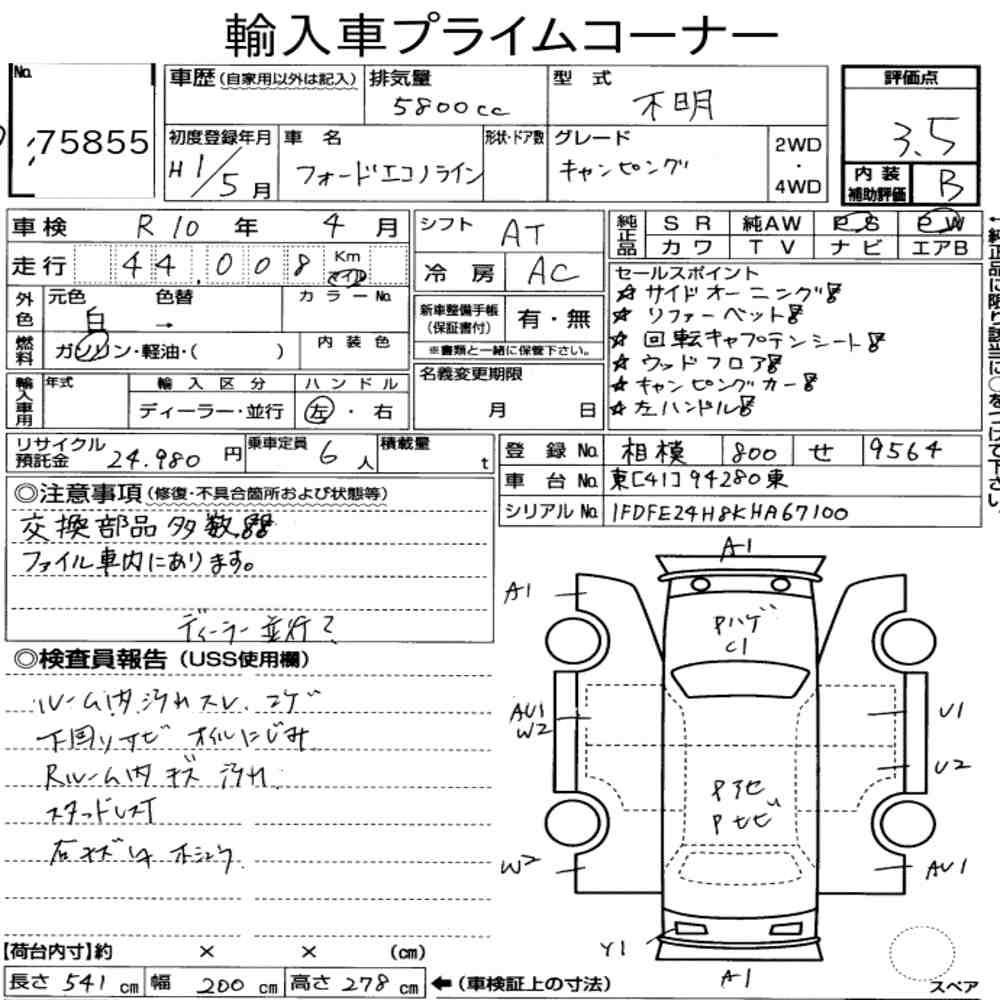 輸入車プライムコーナー
No. 75855
車歴(自家用以外は記入) 排気量 5800cc 型式 不明
評価点 3.5
初度登録年月 H1/5月 車名 フォードエコノライン 形状・ドア数 グレード キャンピング 2WD・4WD
内装補助評価 B
車検 R10年 4月 シフト AT
純正品 SR 純AW PS PW
カワ TV ナビ エアB
走行 44,008 Km マイル 冷房 AC
←純正品に限り該当に○をつけて下さい。
外色 元色 白 色替 → カラーNo.
燃料 ガソリン・軽油・( ) 内装色
新車整備手帳(保証書付) 有・無
※書類と一緒に保管下さい。
セールスポイント
☆サイドオーニング!!
☆リファーベット!!
☆回転キャプテンシート!!
☆ウッドフロア!!
☆キャンピングカー!!
☆左ハンドル!!
輸入車用 年式 輸入区分 ディーラー・並行 ハンドル 左・右
名義変更期限 月 日
リサイクル預託金 24.980円 乗車定員 6人 積載量 t
登録No. 相模 800 せ 9564
車台No. 東[41]94280東
シリアルNo. 1FDFE24H8KHA67100
◎注意事項(修復・不具合箇所および状態等)
交換部品多数!!
ファイル車内にあります。
ディーラー並行?
◎検査員報告(USS使用欄)
ルーム内汚れスレ コゲ
下回りサビ オイルにじみ
Rルーム内キズ 汚れ
スタッドレスT
A1
A1
Pハゲ
C1
AU1
W2
U1
U2
W2
AU1
Y1
A1
スペア
【荷台内寸】約 × × (cm)
長さ 541cm 幅 200cm 高さ 278cm ←(車検証上の寸法)